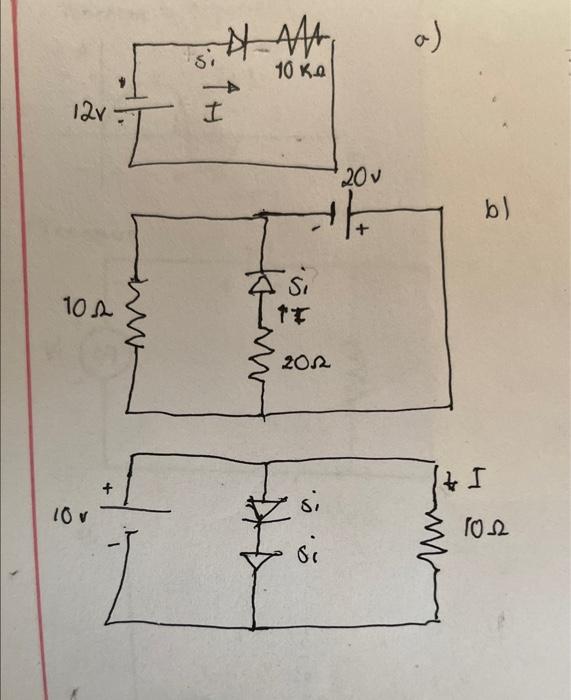 a)
Si
10 KΩ
+
12v
-
I
20v
b)
- +
10Ω
Si
↑I
20Ω
+
10v
-
Si
Si
↓ I
10Ω